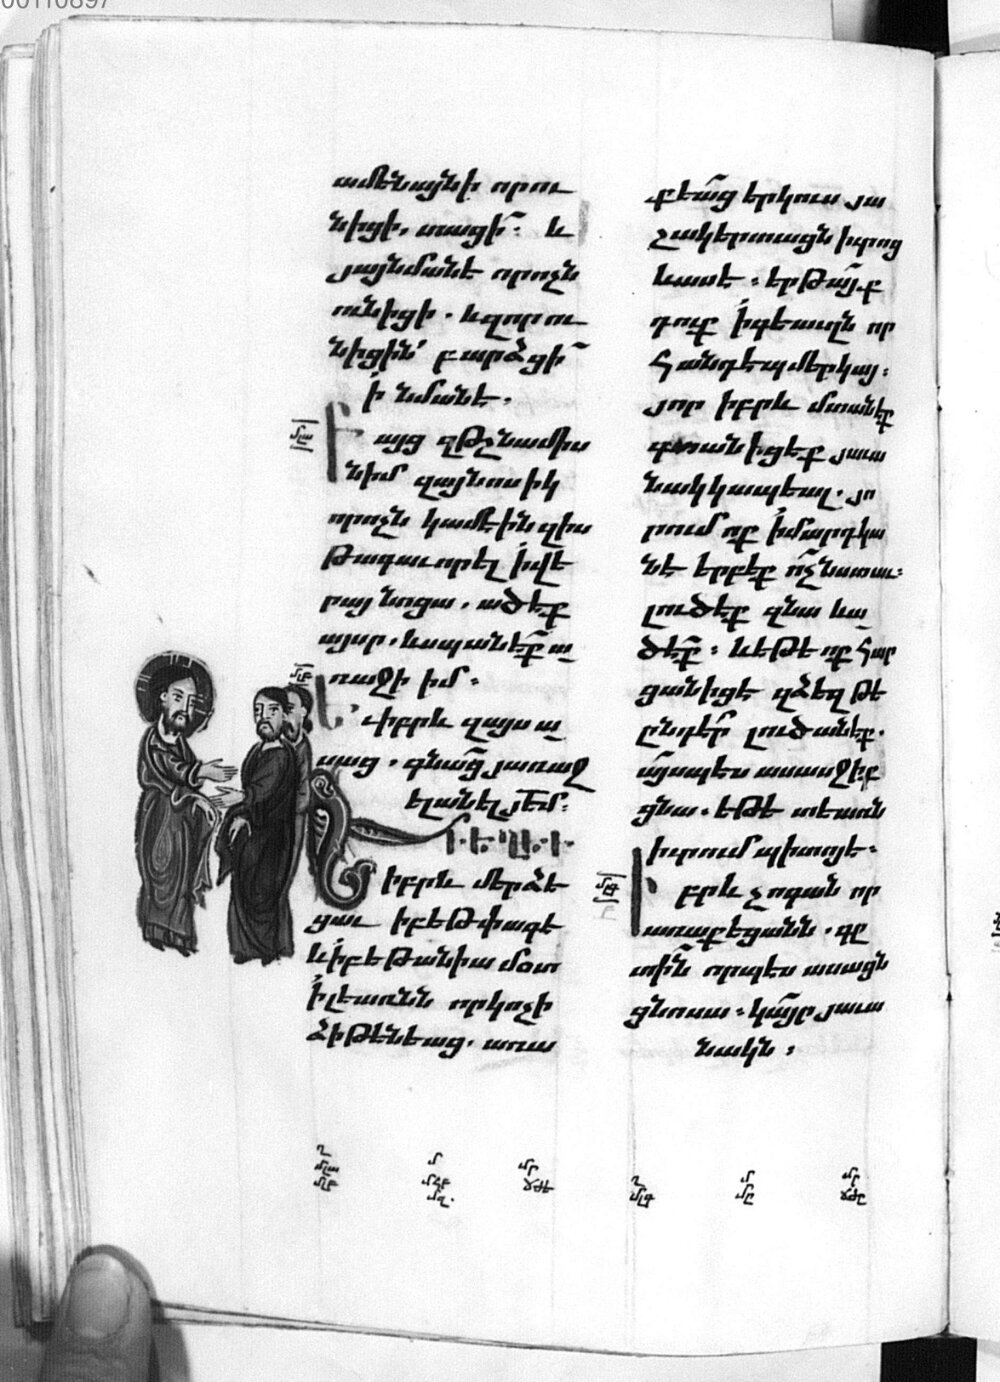 00110897
ամենայնի որ ու
նիցի, տացի՜։ և
յայնմանե որոչն
ունիցի. ևզոր ու
նիցին՝ բարձցի՜
ի նմանե.
մլա
Բայց զթշնամիս
նիմ զայնոսիկ
որոչն կամէին զիս
թագաւորել իվե
րայ նոցա. ածեք
այսր. ևսպանե՜ք ա
մլբ
ռաջի իմ։
Եւ իբրև զայս ա
սաց. գնա՜ց յառաջ
ելանել յե՜մ։
Եւ իբրև մերձե
ցաւ իբեթփագե
ևիբեթանիա մօտ
իլեառնն որկոչի
ձիթենեաց. առա
քեա՜ց երկուս յա
շակերտացն իւրոց
ևասե։ երթա՜յք
դուք իգեաւղն որ
հանդէպ մերկայ։
յոր իբրև մտանեք
գտանիցեք յաւա
նակ կապեալ. յո
րում ոք իմարդկա
նե երբեք ո՜չ նստաւ։
լուծեք զնա և ա
ծե՜ք։ ևեթե ոք հար
ցանիցե զձեզ թե
ընդե՜ր լուծանեք.
ա՜յսպես ասասջիք
ցնա. եթե տեառն
իւրում պիտոյե։
մլգ
Իբրև չոգան որ
առաքեցանն. գը
տին որպես ասացն
ցնոսա։ կա՜յր յաւա
նակն։
մլա
մլբ
մլգ